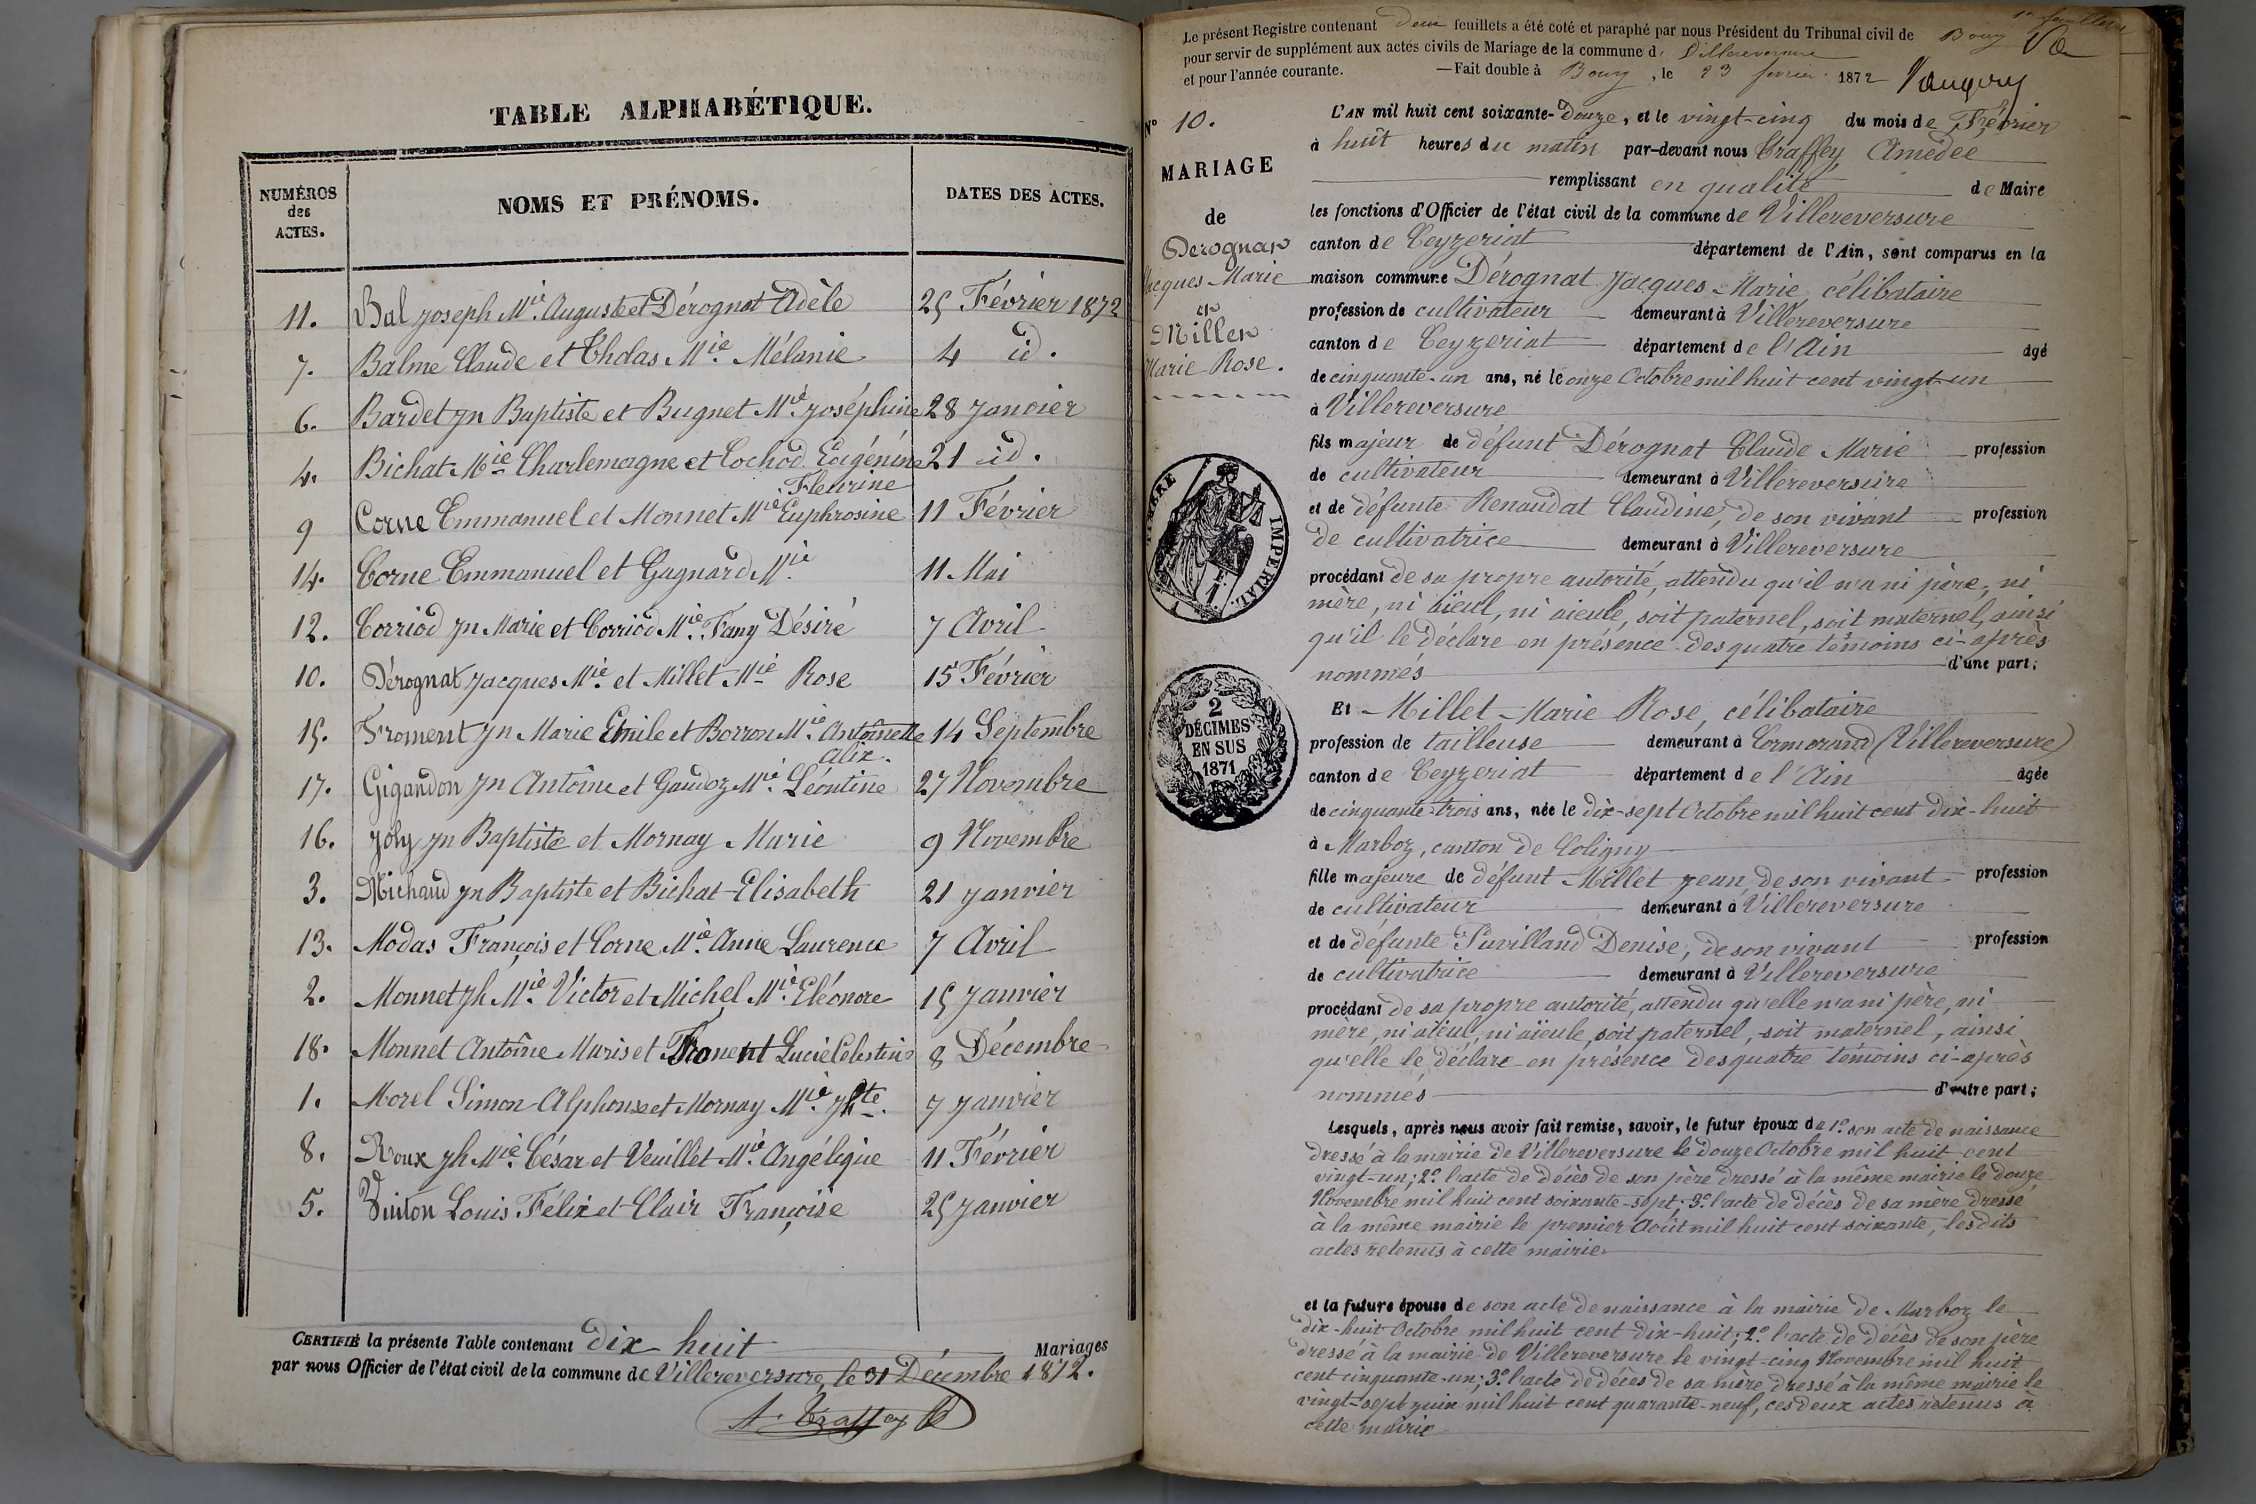 TABLE ALPHABÉTIQUE.
NUMÉROS des ACTES.
NOMS ET PRÉNOMS.
DATES DES ACTES.
11. Bal Joseph Mie. Auguste et Dérognat Adèle 25 Février 1872
7. Balme Claude et Chdas Mie. Mélanie 4 id.
6. Bardet Jn Baptiste et Bugnet Mie. Joséphine 28 Janvier
4. Bichat Mie Charlemagne et Cochod Eugénine 21 id.
Fleurine
9 Corne Emmanuel et Monnet Mie Euphrosine 11 Février
14. Corne Emmanuel et Gagnard Mie. 11 Mai
12. Corriod Jn Marie et Corriod Mie. Fany Désiré 7 Avril
10. Dérognat Jacques Mie. et Millet Mie Rose 15 Février
15. Froment Jn Marie Emile et Borron Mie. Antoinette 14 Septembre
Alix.
17. Gigandon Jn Antoine et Gaudoz Mie. Léontine 27 Novembre
16. Joly Jn Baptiste et Mornay Marie 9 Novembre
3. Michaud Jn Baptiste et Bichat Elisabeth 21 Janvier
13. Modas François et Corne Mie. Anne Laurence 7 Avril
2. Monnet Jh Mie. Victor et Michel Mie. Eléonore 15 Janvier
18. Monnet Antoine Maris et Froment Lucie Célestine 8 Décembre
1. Morel Simon Alphonse et Mornay Mie. Jhte. 7 Janvier
8. Roux Jh Mie. César et Veuillet Mie. Angélique 11 Février
5. Vuiton Louis Félix et Clair Françoise 25 Janvier
CERTIFIÉ la présente Table contenant dix huit Mariages
par nous Officier de l'état civil de la commune de Villereversure, le 31 Décembre 1872.
A. Craffey
1er feuillet
Le présent Registre contenant deux feuillets a été coté et paraphé par nous Président du Tribunal civil de Bourg
pour servir de supplément aux actes civils de Mariage de la commune de Villereversure
et pour l'année courante. —Fait double à Bourg, le 23 février 1872
No 10.
MARIAGE
de
Derognat
Jacques Marie
et
Millet
Marie Rose.
TIMBRE IMPERIAL.
1 F
2
DÉCIMES
EN SUS
1871
L'AN mil huit cent soixante-douze, et le vingt-cinq du mois de Février
à huit heures du matin par-devant nous Craffey Amédée
remplissant en qualité de Maire
les fonctions d'Officier de l'état civil de la commune de Villereversure
canton de Ceyzeriat département de l'Ain, sont comparus en la
maison commune Dérognat Jacques Marie, célibataire
profession de cultivateur demeurant à Villereversure
canton de Ceyzeriat département de l'Ain âgé
de cinquante-un ans, né le onze Octobre mil huit cent vingt-un
à Villereversure
fils majeur de défunt Dérognat Claude Marie profession
de cultivateur demeurant à Villereversure
et de défunte Renaudat Claudine, de son vivant profession
de cultivatrice demeurant à Villereversure
procédant de sa propre autorité, attendu qu'il n'a ni père, ni
mère, ni aïeul, ni aieule, soit paternel, soit maternel, ainsi
qu'il le déclare en présence des quatre témoins ci-après
nommés d'une part;
Et Millet Marie Rose, célibataire
profession de tailleuse demeurant à Cormorand (Villereversure)
canton de Ceyzeriat département de l'Ain âgée
de cinquante-trois ans, née le dix-sept Octobre mil huit cent dix-huit
à Marboz, canton de Coligny
fille majeure de défunt Millet Jean, de son vivant profession
de cultivateur demeurant à Villereversure
et de défunte Puvilland Denise, de son vivant profession
de cultivatrice demeurant à Villereversure
procédant de sa propre autorité, attendu qu'elle n'a ni père, ni
mère, ni aïeul, ni aïeule, soit paternel, soit maternel, ainsi
qu'elle le déclare en présence des quatre témoins ci-après
nommés d'autre part;
Lesquels, après nous avoir fait remise, savoir, le futur époux de 1o. son acte de naissance
dressé à la mairie de Villereversure le douze Octobre mil huit cent
vingt-un; 2o. l'acte de décès de son père dressé à la même mairie le douze
Novembre mil huit cent soixante-sept; 3o. l'acte de décès de sa mère dressé
à la même mairie le premier Août mil huit cent soixante, lesdits
actes retenus à cette mairie
et la future épouse de son acte de naissance à la mairie de Marboz le
dix-huit Octobre mil huit cent dix-huit; 2o. l'acte de décès de son père
dressé à la mairie de Villereversure le vingt-cinq Novembre mil huit
cent cinquante-un; 3o. l'acte de décès de sa mère dressé à la même mairie le
vingt-sept juin mil huit cent quarante-neuf, ces deux actes retenus à
cette mairie